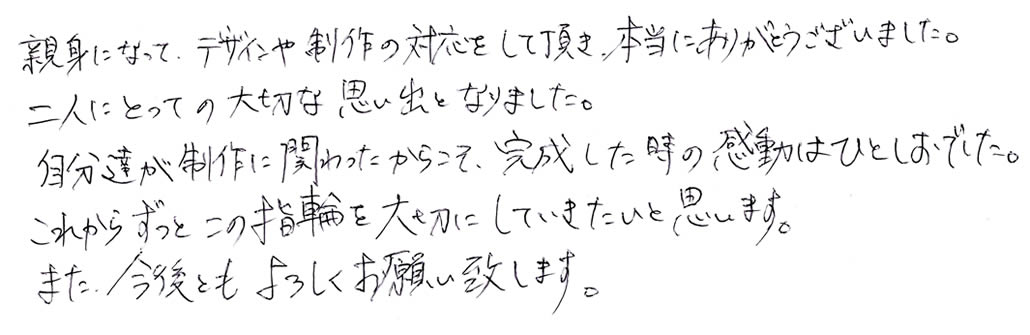 親身になって、デザインや制作の対応をして頂き、本当にありがとうございました。
二人にとっての大切な思い出となりました。
自分達が制作に関わったからこそ、完成した時の感動はひとしおでした。
これからずっとこの指輪を大切にしていきたいと思います。
また、今後ともよろしくお願い致します。